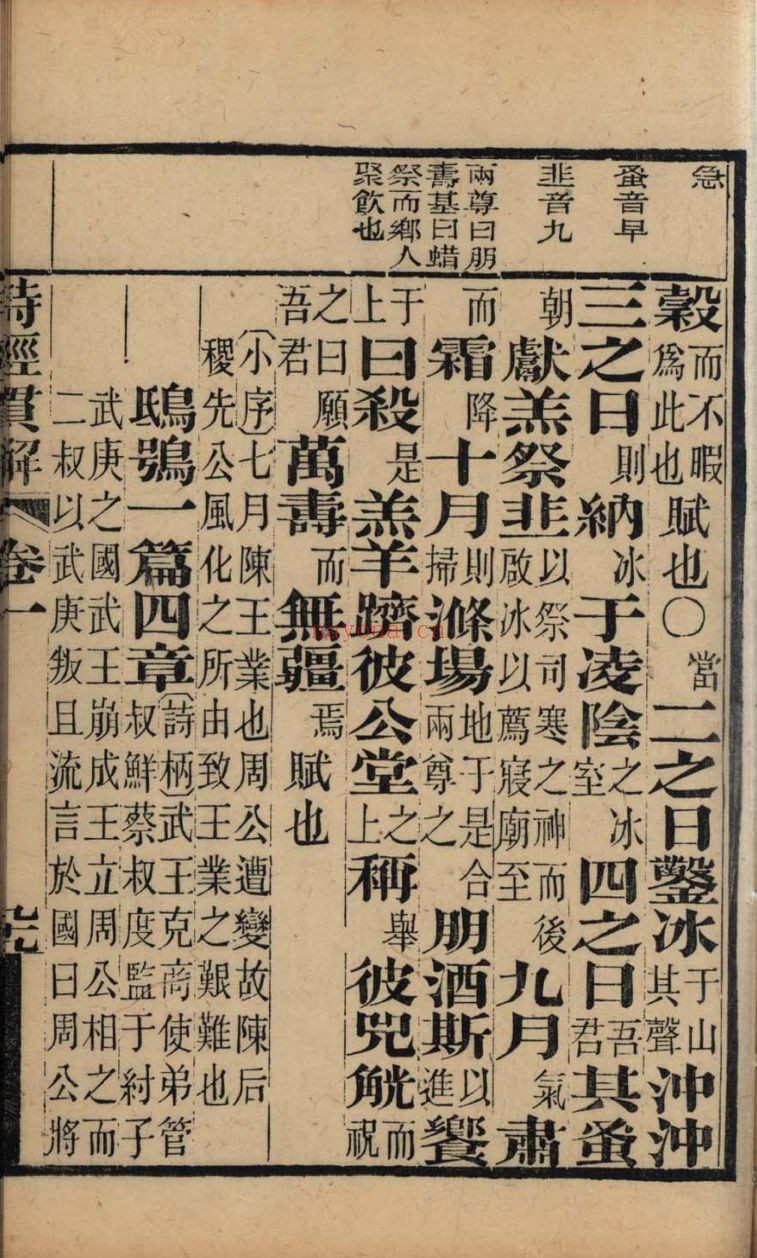 急
蚤音早
韭音九
兩尊曰朋
壽基曰蜡
祭而鄉人
聚飲也
穀而不暇為此也賦也〇當二之日鑿冰于山其聲沖沖
三之日則納冰于凌陰之冰室四之日吾君其蚤
朝獻羔祭韭以祭司寒之神而後啟冰以薦寢廟至九月氣肅
而霜降十月則掃滌場地于是合兩尊之朋酒斯以進饗
于上曰殺是羔羊躋彼公堂之上稱舉彼兕觥而祝
之曰願吾君萬壽而無疆焉賦也
(小序)七月陳王業也周公遭變故陳后
稷先公風化之所由致王業之艱難也
鴟鴞一篇四章(詩柄)武王克商使弟管叔鮮蔡叔度監于紂子
武庚之國武王崩成王立周公相之而
二叔以武庚叛且流言於國曰周公將
詩經貫解 卷一